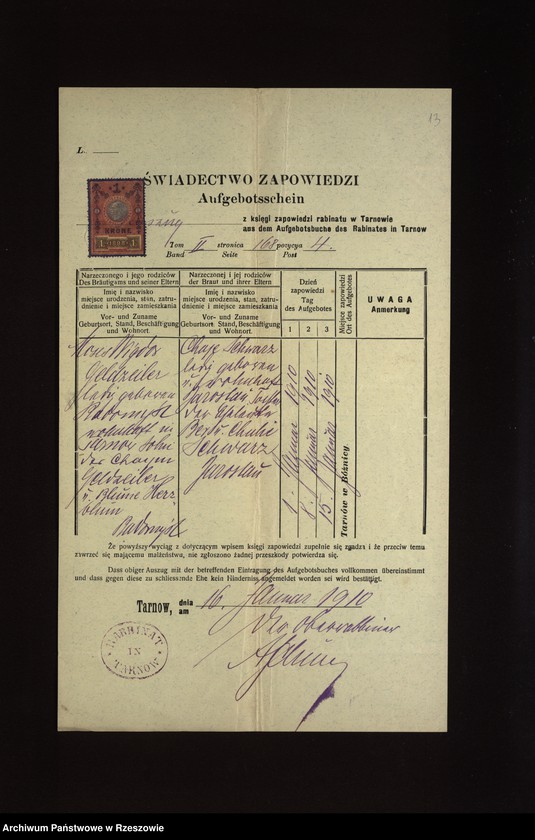 13
L.
ŚWIADECTWO ZAPOWIEDZI
Aufgebotsschein
z księgi zapowiedzi rabinatu w Tarnowie
aus dem Aufgebotsbuche des Rabinates in Tarnow
Tom II stronica 168 pozycya 4.
Band Seite Post
1
KRONE
Narzeczonego i jego rodziców
Des Bräutigams und seiner Eltern
Imię i nazwisko
miejsce urodzenia, stan, zatru-
dnienie i miejsce zamieszkania
Vor- und Zuname
Geburtsort, Stand, Beschäftigung
und Wohnort.
Narzeczonej i jej rodziców
der Braut und ihrer Eltern
Imię i nazwisko
miejsce urodzenia, stan, zatru-
dnienie i miejsce zamieszkania
Vor- und Zuname
Geburtsort, Stand, Beschäftigung
und Wohnort.
Dzień
zapowiedzi
Tag
des Aufgebotes
1 2 3
Miejsce zapowiedzi
Ort des Aufgebotes
UWAGA
Anmerkung
Moses Wigdor
Geldzeiler
ledig geboren
Radomyśl
wohnhaft in
Tarnow Sohn
des Chaim
Geldzeiler
u. Blume Herz-
blum
Radomyśl
Chaje Schwarz
ledig geboren
u. wohnhaft
Jaroslau Tochter
der Eheleute
Schwarz
Jaroslau
1. Januar 1910
8. Januar 1910
15. Januar 1910
Tarnów w Bóżnicy
Że powyższy wyciąg z dotyczącym wpisem księgi zapowiedzi zupełnie się zgadza i że przeciw temu
zawrzeć się mającemu małżeństwu, nie zgłoszono żadnej przeszkody potwierdza się.
Dass obiger Auszug mit der betreffenden Eintragung des Aufgebotsbuches vollkommen übereinstimmt
und dass gegen diese zu schliessende Ehe kein Hinderniss angemeldet worden sei wird bestätigt.
Tarnow, dnia
am 16. Januar 1910
Der Oberrabbiner
RABBINAT
IN
TARNOW
Archiwum Państwowe w Rzeszowie